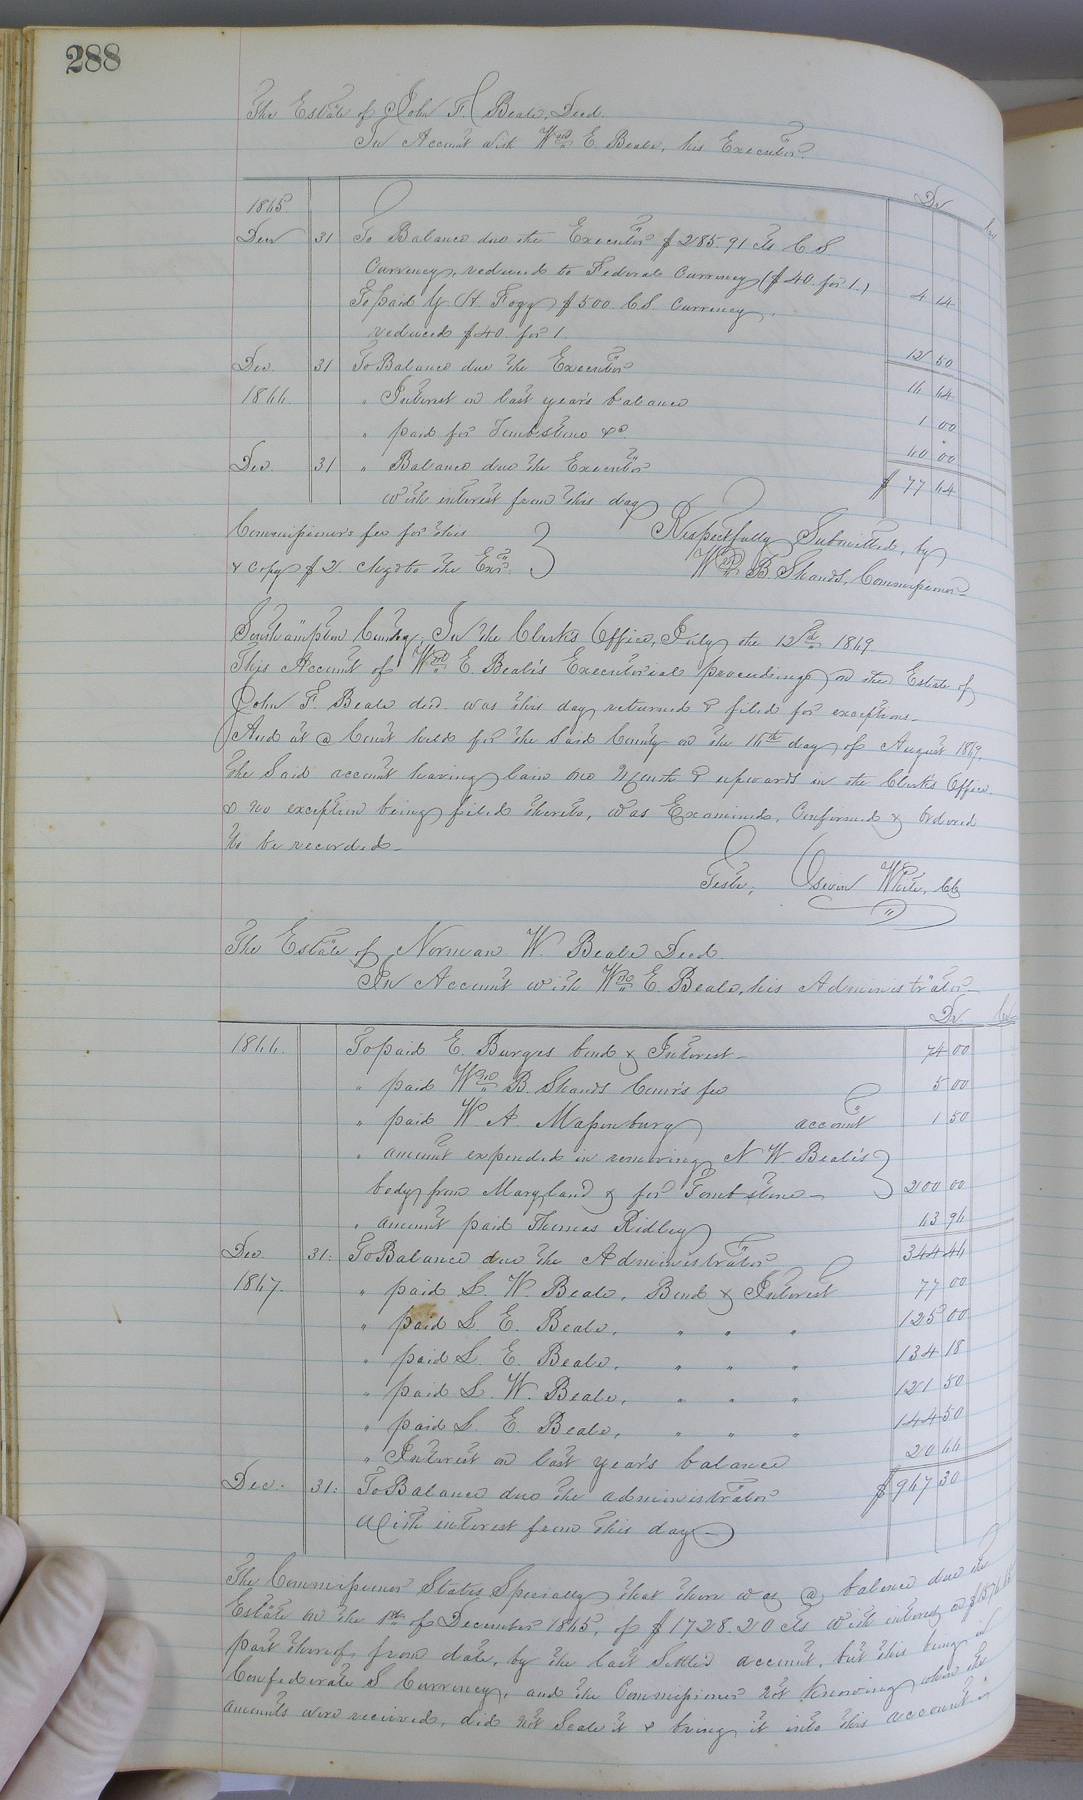 288
The Estate of John F. Beale, Decd.
In Account with Wm. E. Beale, his Executor.
Dr Cr
1865.
Decr 31 To Balance due the Executor $285.91 cts C.S.
Currency, reduced to Federal Currency ($40. for 1.) 4 14
To paid G. H. Fogg $500. C.S. Currency,
reduced $40. for 1. 12 50
Dec. 31 To Balance due the Executor 16 64
1866. " Interest on last year's balance 1 00
" paid for Tombstone &c. 60 00
Dec. 31 " Balance due the Executor $ 77 64
with interest from this day
Commissioner's fee for this
& copy $2. chgd to the Exr.
Respectfully Submitted, by
Wm. B. Shands, Commissioner
Southampton County, In the Clerk's Office, July the 12th 1869.
This Account of Wm. E. Beale's Executorial proceedings on the Estate of
John F. Beale decd. was this day returned & filed for exceptions.
And at a Court held for the said County on the 16th day of August 1869.
The said account having lain one Month & upwards in the Clerk's Office,
& no exception being filed thereto, was Examined, Confirmed & Ordered
to be recorded.
Teste, White, CC
The Estate of Norman W. Beale Decd
In Account with Wm. E. Beale, his Administrator
Dr Cr
1866. To paid E. Burges bond & Interest 74 00
" paid Wm. B. Shands Comr's fee 5 00
" paid W. A. Massenburg account 1 50
" amount expended in removing N W Beale's
body from Maryland & for Tombstone 200 00
" amount paid Thomas Ridley 63 96
Dec. 31. To Balance due the Administrator 344 46
1867. " paid S. W. Beale, Bond & Interest 77 00
" paid S. E. Beale, " " " 125 00
" paid S. E. Beale, " " " 134 18
" paid S. W. Beale, " " " 121 50
" paid S. E. Beale, " " " 144 50
" Interest on last year's balance 20 66
Dec. 31. To Balance due the administrator $ 967 30
With interest from this day
The Commissioner States Specially that there was a balance due the
Estate on the 1st of December 1865, of $1728.20 cts with interest on
part thereof from date, by the last Settled account, but this being in
Confederate S Currency, and the Commissioner not knowing when the
amounts were received, did not Scale it & bring it into this account